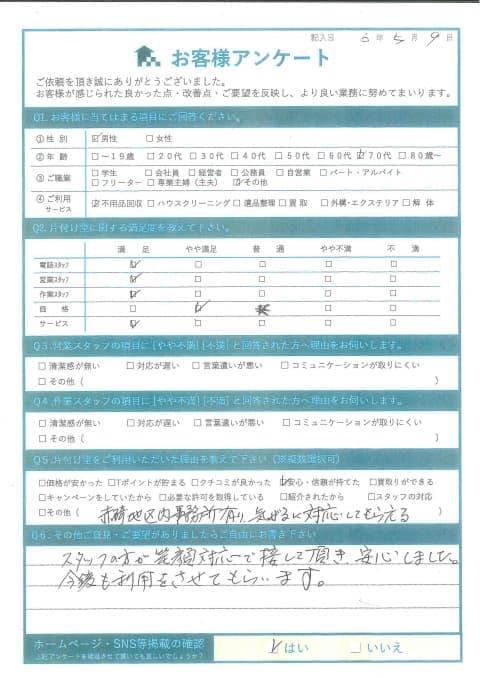 記入日 6 年 5 月 9 日
お客様アンケート
ご依頼を頂き誠にありがとうございました。
お客様が感じられた良かった点・改善点・ご要望を反映し、より良い業務に努めてまいります。
Q1. お客様に当てはまる項目にご回答ください。
①性 別 ☑男性 □女性
②年 齢 □～19歳 □20代 □30代 □40代 □50代 □60代 ☑70代 □80歳～
③ご職業 □学生 □会社員 □経営者 □公務員 □自営業 □パート・アルバイト
□フリーター □専業主婦（主夫） ☑その他
④ご利用サービス ☑不用品回収 □ハウスクリーニング □遺品整理 □買 取 □外構・エクステリア □解 体
Q2. 片付け堂に関する満足度を教えて下さい。
満 足 やや満足 普 通 やや不満 不 満
電話スタッフ ☑ □ □ □ □
営業スタッフ ☑ □ □ □ □
作業スタッフ ☑ □ □ □ □
価 格 □ ☑ □ □
サービス ☑ □ □ □ □
Q3. 営業スタッフの項目に [やや不満] [不満] と回答された方へ理由をお伺いします。
□清潔感が無い □対応が遅い □言葉遣いが悪い □コミュニケーションが取りにくい
□その他（ ）
Q4. 作業スタッフの項目に [やや不満] [不満] と回答された方へ理由をお伺いします。
□清潔感が無い □対応が遅い □言葉遣いが悪い □コミュニケーションが取りにくい
□その他（ ）
Q5. 片付け堂をご利用いただいた理由を教えて下さい（※複数選択可）
□価格が安かった □Tポイントが貯まる □クチコミが良かった ☑安心・信頼が持てた □買取りができる
□キャンペーンをしていたから □必要な許可を取得している □紹介されたから □スタッフの対応
□その他（ 赤崎地区内事務所有り、気がるに対応してもらえる
Q6. その他ご意見・ご要望がありましたらご自由にお書き下さい
スタッフの方が笑顔対応で接して頂き、安心しました。
今後も利用をさせてもらいます。
ホームページ・SNS等掲載の確認 ☑はい □いいえ
上記アンケートを掲載させて頂いても宜しいでしょうか？